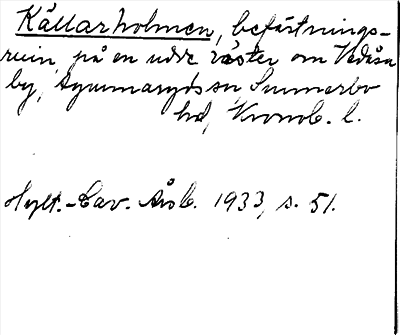 Källarholmen, befästnings-
ruin på en udde väster om Vedåsa
by, Agunnaryds sn, Sunnerbo
hd, Kronob. l.
Hylt.-Cav. Årsb. 1933, s. 51.